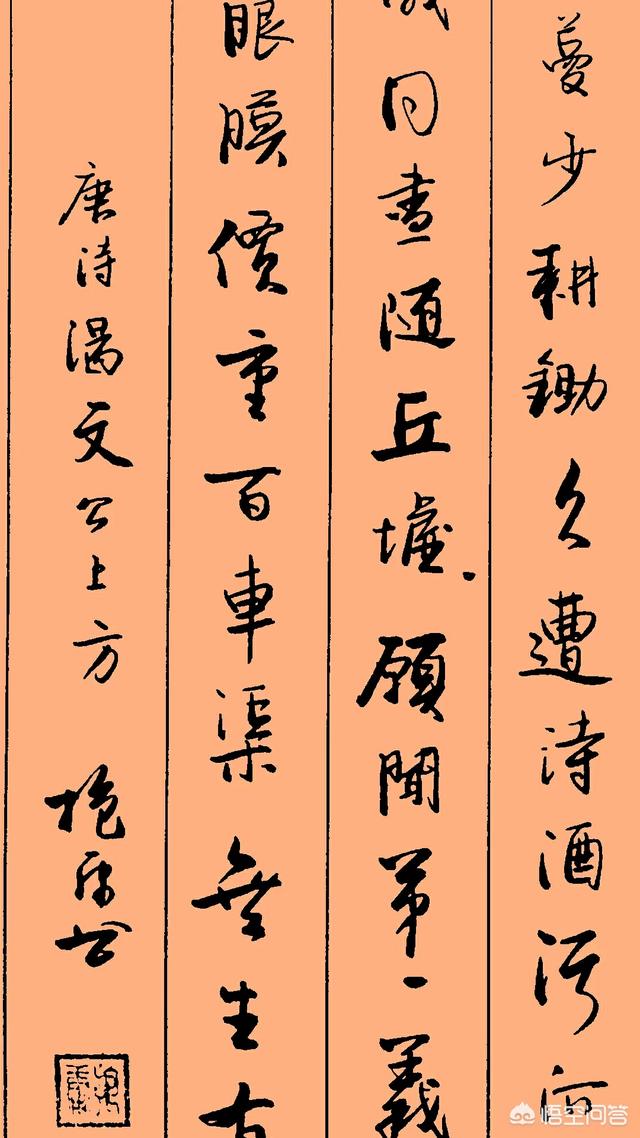 蔓少耕鋤久遭詩酒污何
同盡随丘墟願聞第一義
眼膜價重百車渠無生有
唐詩謁文公上方
書
悟空问答